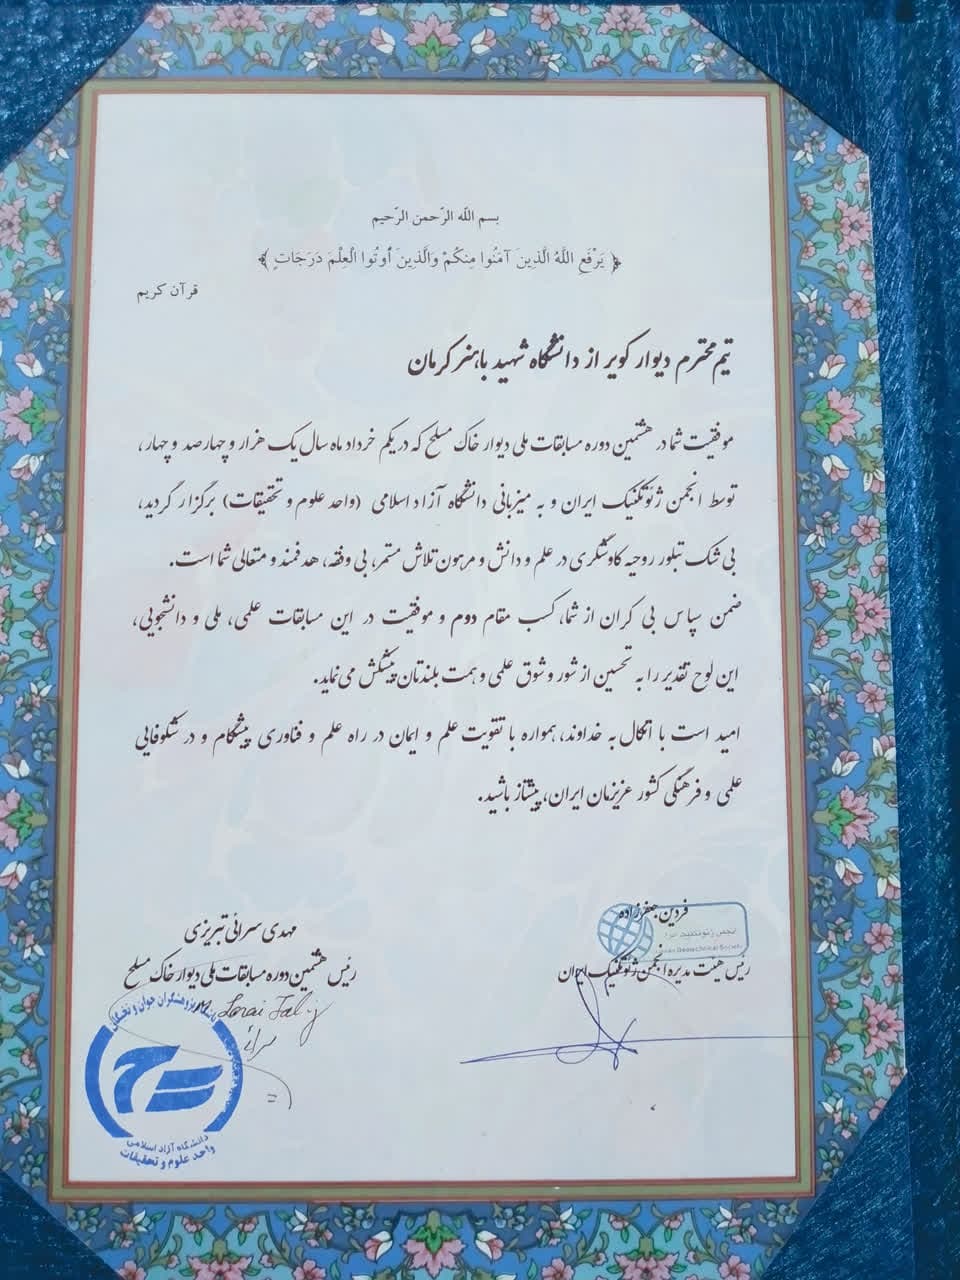 بسم الله الرّحمن الرّحیم
﴿ يَرْفَعِ اللَّهُ الَّذِينَ آمَنُوا مِنكُمْ وَالَّذِينَ أُوتُوا الْعِلْمَ دَرَجَاتٍ ﴾
قرآن کریم
تیم محترم دیوار کویر از دانشگاه شهید باهنر کرمان
موفقیت شما در هشتمین دوره مسابقات ملی دیوار خاک مسلح که در یکم خرداد ماه سال یک هزار و چهارصد و چهار،
توسط انجمن ژئوتکنیک ایران و به میزبانی دانشگاه آزاد اسلامی (واحد علوم و تحقیقات) برگزار گردید،
بی شک تبلور روحیه کاوشگری در علم و دانش و مرهون تلاش مستمر، بی وقفه، هدفمند و متعالی شما است.
ضمن سپاس بی کران از شما، کسب مقام دوم و موفقیت در این مسابقات علمی، ملی و دانشجویی،
این لوح تقدیر را به تحسین از شور و شوق علمی و همت بلندتان پیشکش می نماید.
امید است با اتکال به خداوند، همواره با تقویت علم و ایمان در راه علم و فناوری پیشگام و در شکوفایی
علمی و فرهنگی کشور عزیزمان ایران، پیشتاز باشید.
فردین جعفرزاده
رئیس هیئت مدیره انجمن ژئوتکنیک ایران
انجمن ژئوتکنیک ایران
Geotechnical Society
مهدی سرائی تبریزی
رئیس هشتمین دوره مسابقات ملی دیوار خاک مسلح
باشگاه پژوهشگران جوان و نخبگان
دانشگاه آزاد اسلامی
واحد علوم و تحقیقات